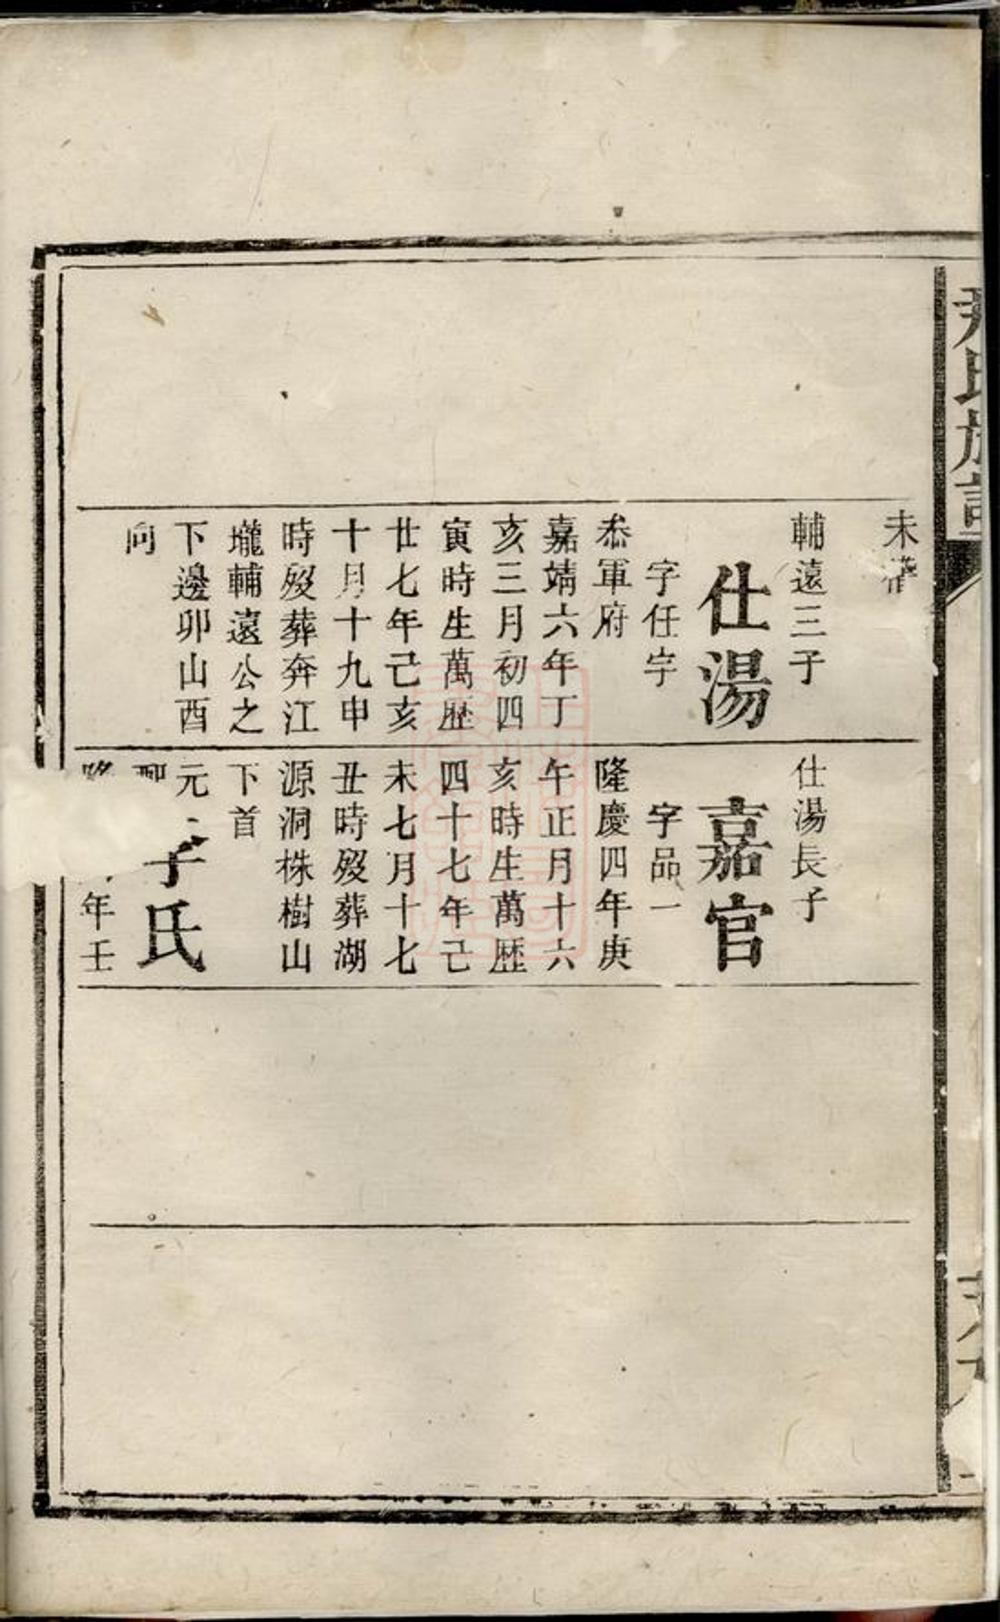 尹氏族譜
未
輔遠三子
仕湯
字任宇
叅軍府
嘉靖六年丁
亥三月初四
寅時生萬歴
廿七年己亥
十月十九申
時殁葬奔江
壠輔遠公之
下邊卯山酉
向
仕湯長子
嘉官
字品一
隆慶四年庚
午正月十六
亥時生萬歴
四十七年己
未七月十七
丑時殁葬湖
源洞株樹山
下首
元
氏
年壬